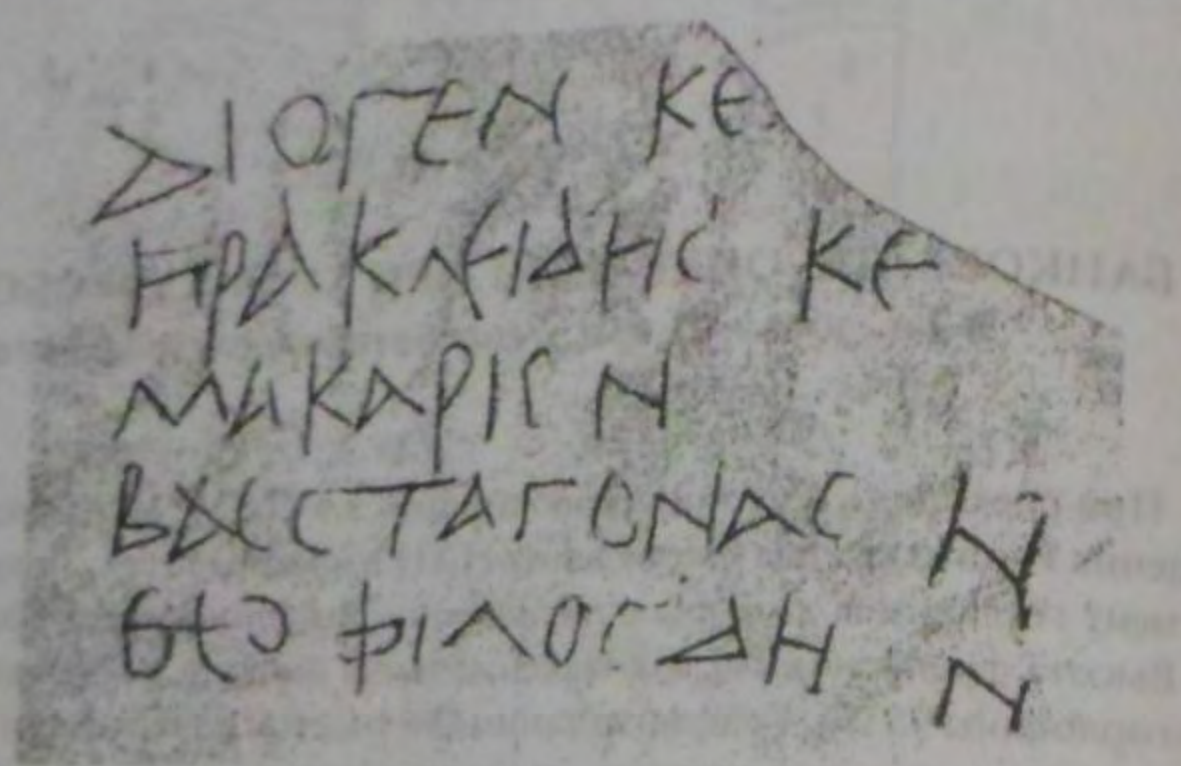 ΔΙΟΓΕΝ ΚΕ
ΗΡΑΚΛΕΙΔΗC ΚΕ
ΜΑΚΑΡΙC Ν
ΒΑCCΤΑΓΟΝΑC Ν
ΘΕΟΦΙΛΟC ΔΗ Ν